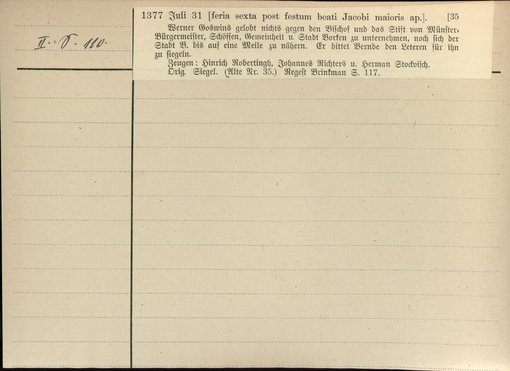 II. 5. 110.
1377 Juli 31 [feria sexta post festum beati Jacobi maioris ap.]. [35
Werner Goswins gelobt nichts gegen den Bischof und das Stift von Münster-
Bürgermeister, Schöffen, Gemeinheit u. Stadt Borken zu unternehmen, noch sich der
Stadt B. bis auf eine Meile zu nähern. Er bittet Bernde den Leteren für ihn
zu siegeln.
Zeugen: Hinrich Robertingh, Johannes Richters u. Herman Stockvisch.
Orig. Siegel. (Alte Nr. 35.) Regest Brinkman S. 117.